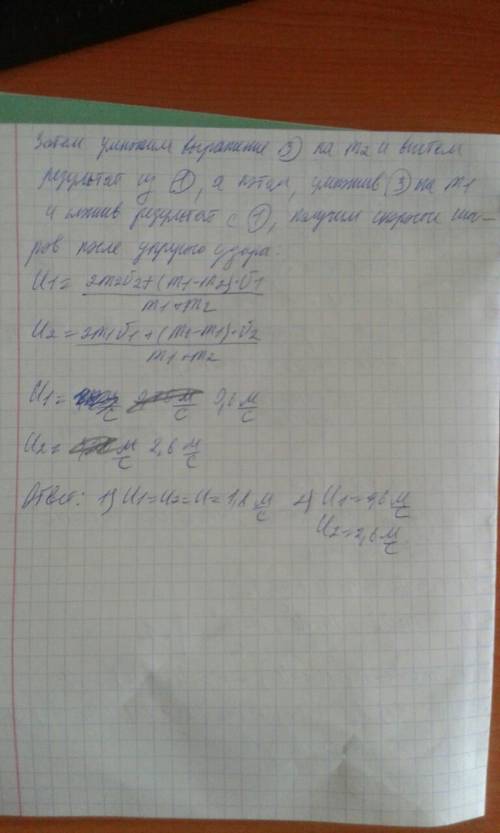 Затем умножим выражение ③ на m2 и вычтем
результат из ①, а потом, умножив ③ на m1
и сложив результат с ①, получим скорости ша-
ров после упругого удара:
U1 = (2m2υ2 + (m1 - m2)·υ1) / (m1 + m2)
U2 = (2m1υ1 + (m2 - m1)·υ2) / (m1 + m2)
U1 = 0,6 м/с
U2 = 2,6 м/с
Ответ: 1) U1 = U2 = U = 1,8 м/с 2) U1 = 0,6 м/с
U2 = 2,6 м/с